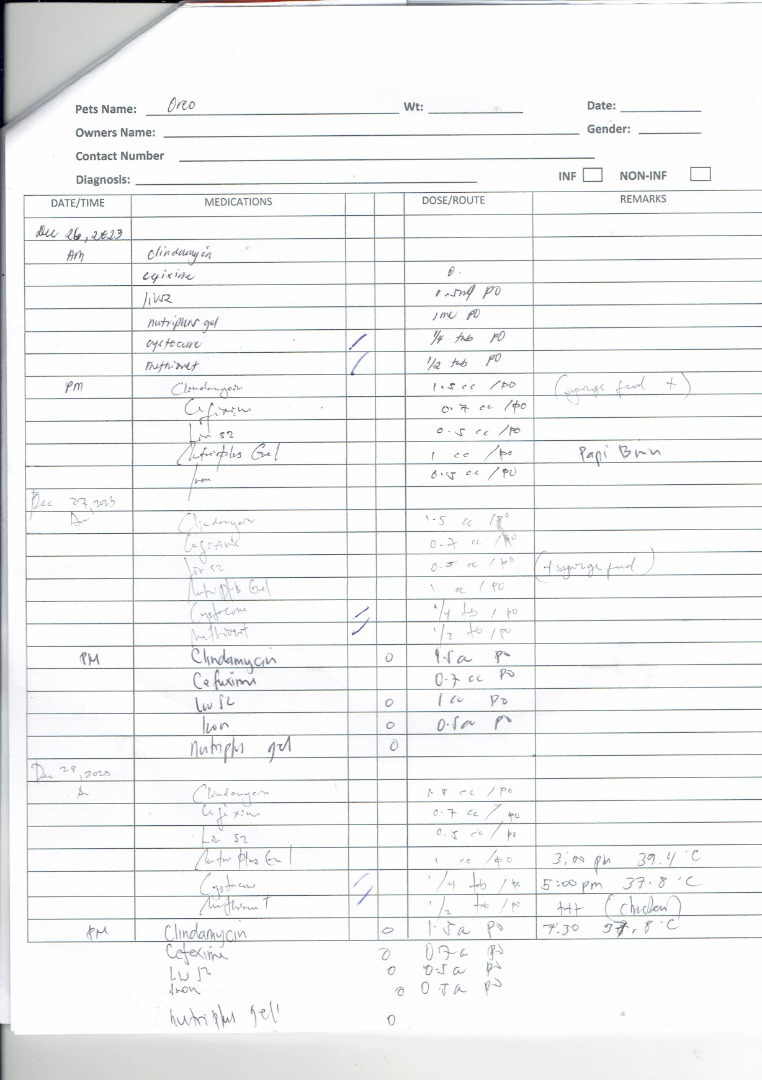 Pets Name: Oreo Wt: Date:
Owners Name: Gender:
Contact Number
Diagnosis: INF NON-INF
DATE/TIME MEDICATIONS DOSE/ROUTE REMARKS
Dec 26, 2023
AM clindamycin
cefixime 0.
liv52 0.5ml PO
nutriplus gel 1ml PO
cystocure 1/4 tab PO
methiovet 1/2 tab PO
PM Clindamycin 1.5 cc /po (syringe feed +)
Cefixime 0.7 cc /po
Liv 52 0.5 cc /po
Nutriplus Gel 1 cc /po Papi Brin
Iron 0.5 cc /po
Dec 27, 2023
Clindamycin 1.5 cc /po
Cefixime 0.7 cc /po
Liv 52 0.5 cc /po (+ syringe feed)
Nutriplus Gel 1 cc /po
Cystocure 1/4 tab /po
Methiovet 1/2 tab /po
PM Clindamycin 0 1.5cc po
Cefixime 0.7 cc po
Liv 52 0 1 cc po
Iron 0 0.5cc po
nutriplus gel 0
Dec 28, 2023
Clindamycin 1.8 cc /po
Cefixime 0.7 cc / po
Liv 52 0.5 cc/po
Nutriplus Gel 1 cc /po 3:00 pm 39.4 °C
Cystocure 1/4 tab / po 5:00 pm 37.8 °C
Methiovet 1/2 tab / po +++ (chicken)
PM Clindamycin 0 1.5cc po 7:30 37.8°C
Cefexime 0 0.7cc po
Liv 52 0 0.5cc po
Iron 0 0.5cc po
nutriplus gel 0